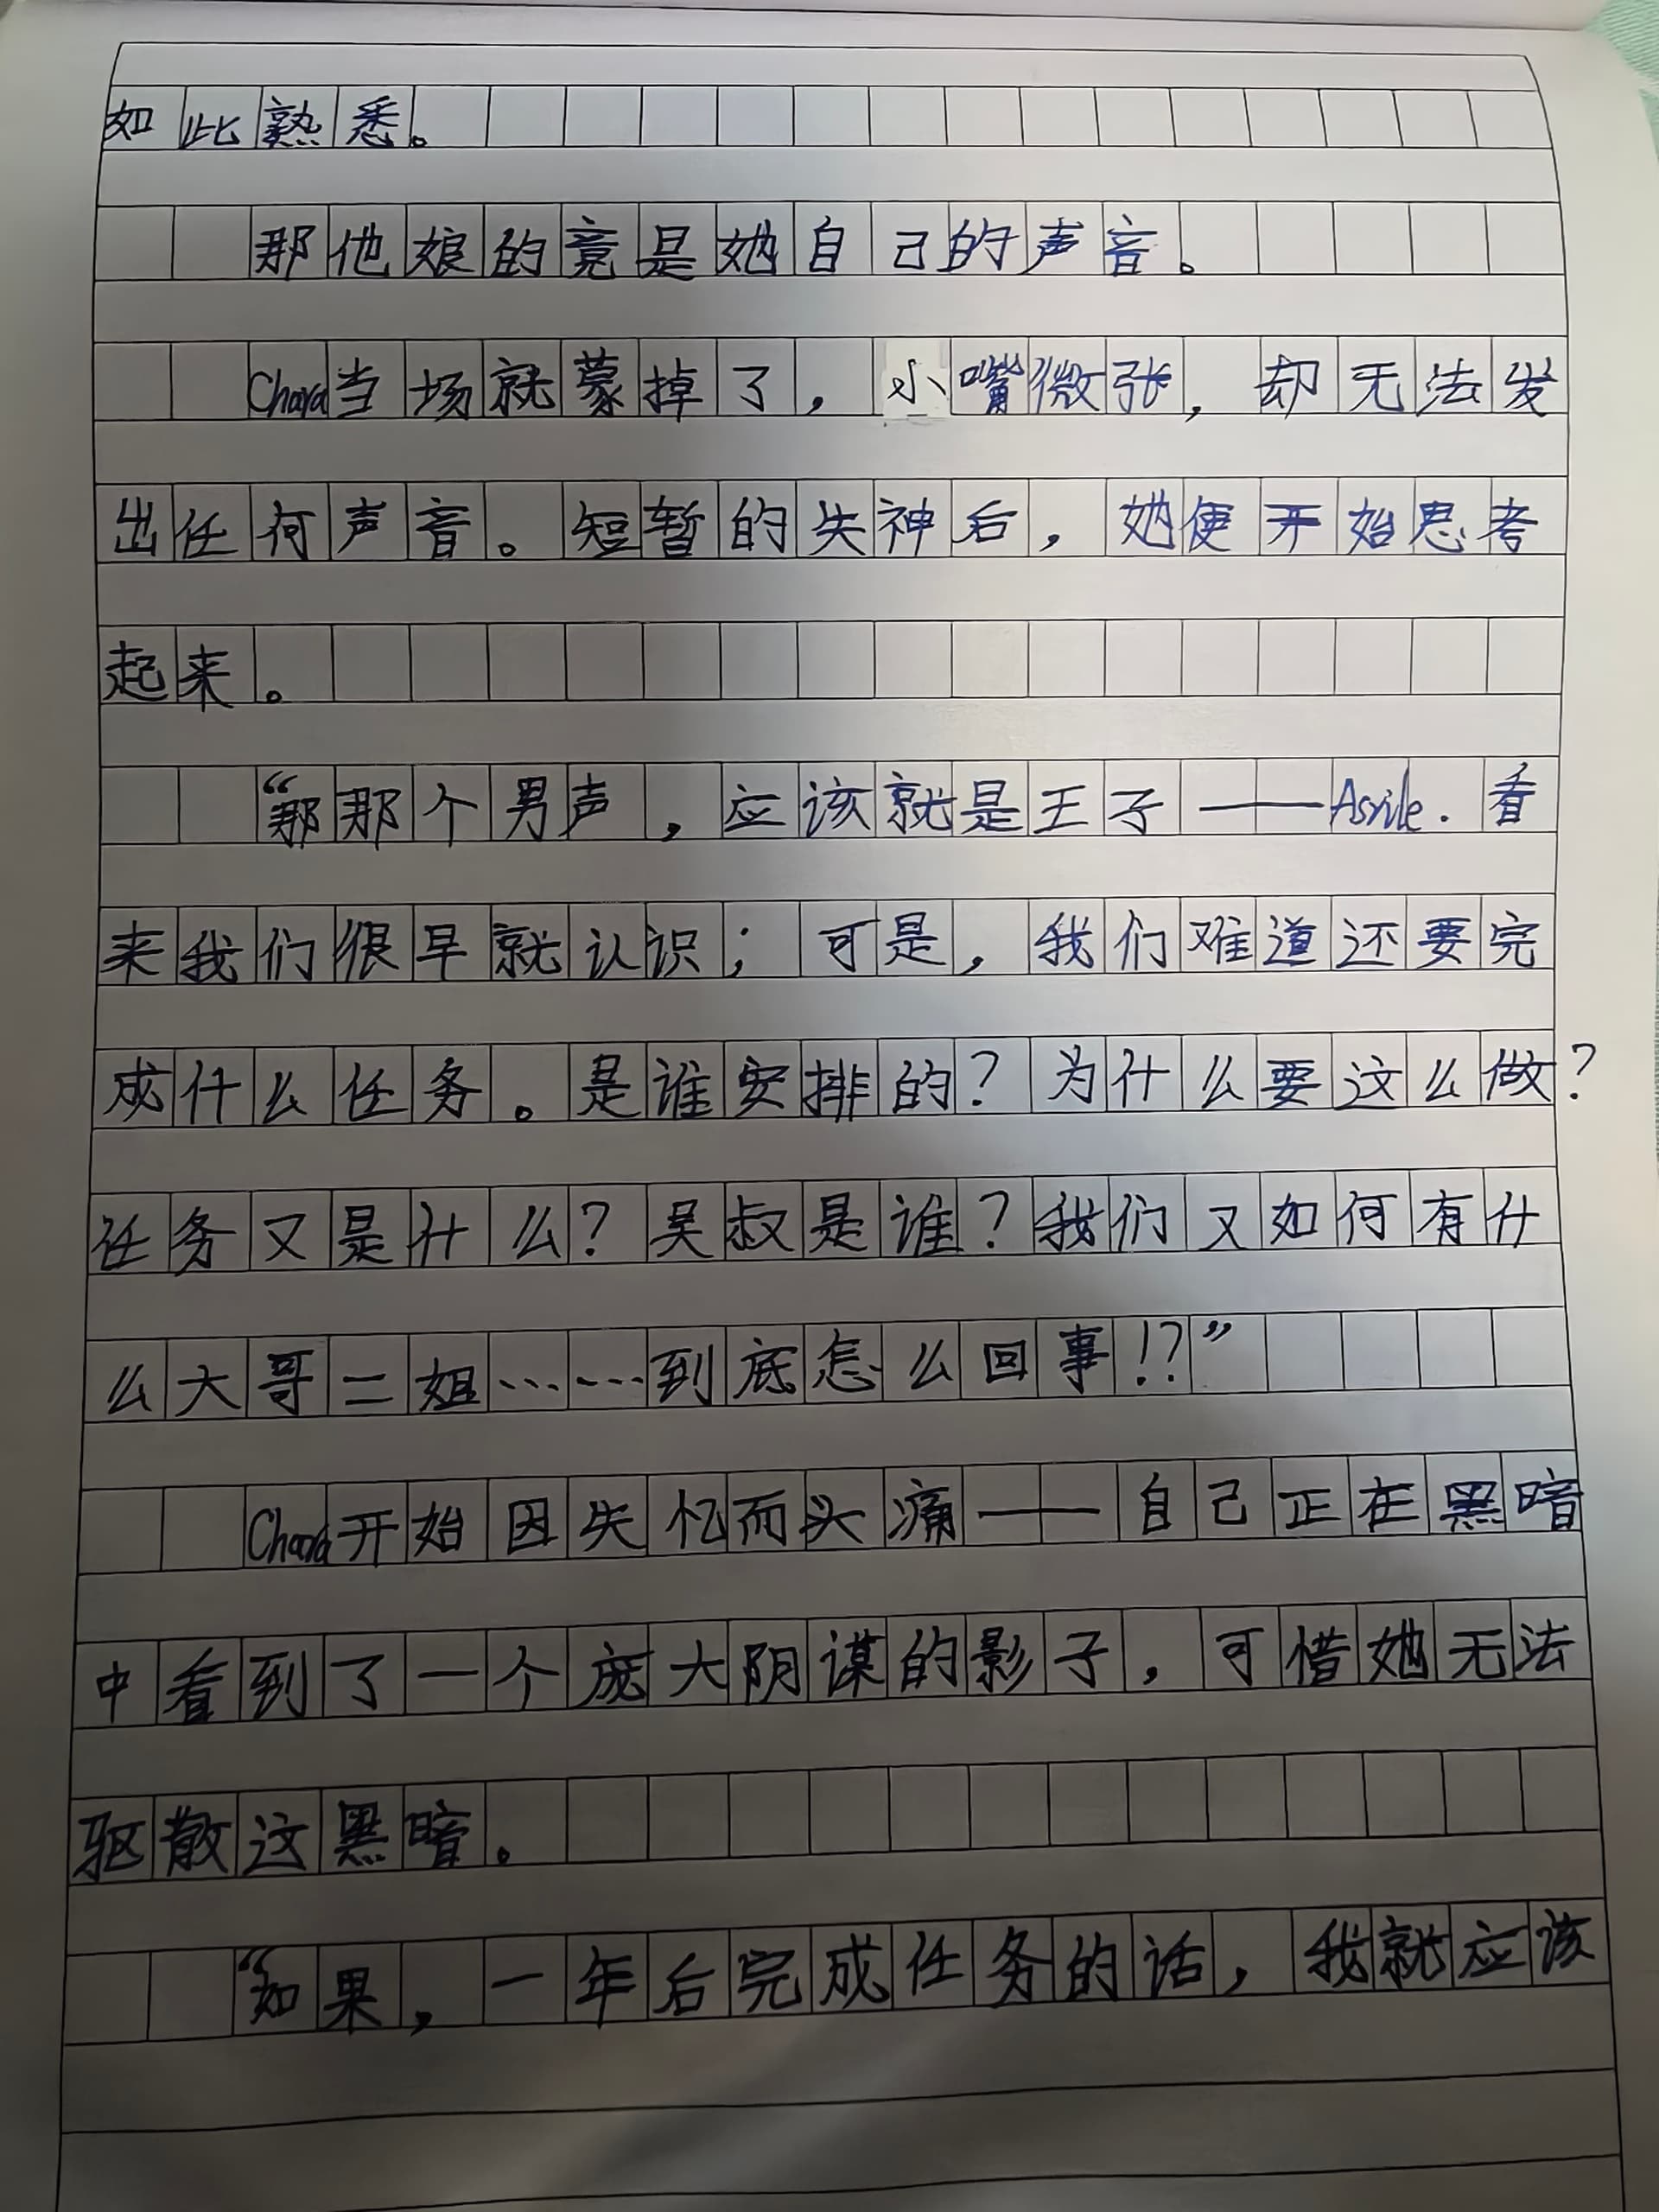 如此熟悉。
那他娘的竟是她自己的声音。
Chara当场就蒙掉了，小嘴微张，却无法发
出任何声音。短暂的失神后，她便开始思考
起来。
“那那个男声，应该就是王子——Asrile.看
来我们很早就认识；可是，我们难道还要完
成什么任务。是谁安排的？为什么要这么做？
任务又是什么？吴叔是谁？我们又如何有什
么大哥二姐……到底怎么回事!?”
Chara开始因失忆而头痛——自己正在黑暗
中看到了一个庞大阴谋的影子，可惜她无法
驱散这黑暗。
“如果，一年后完成任务的话，我就应该